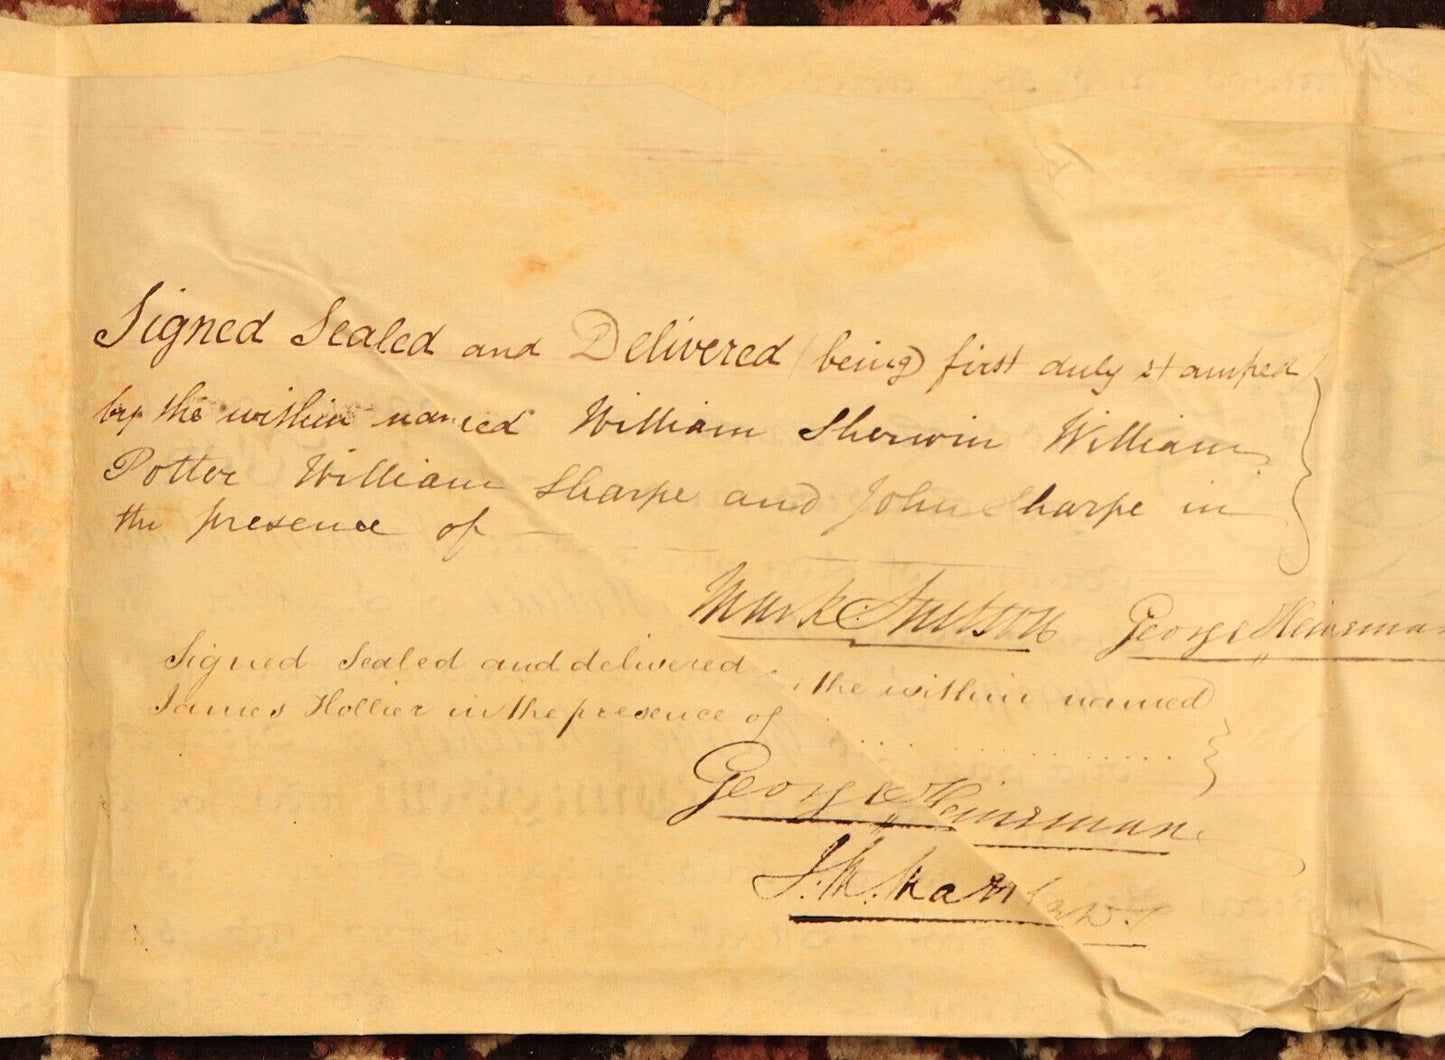 Signed Sealed and Delivered (being) first duly stamped)
by the within named William Sherwin William
Potter William Sharpe and John Sharpe in
the presence of
Mark George Heinsman
Signed Sealed and delivered the within named
James Hollier in the presence of
George Heinsman